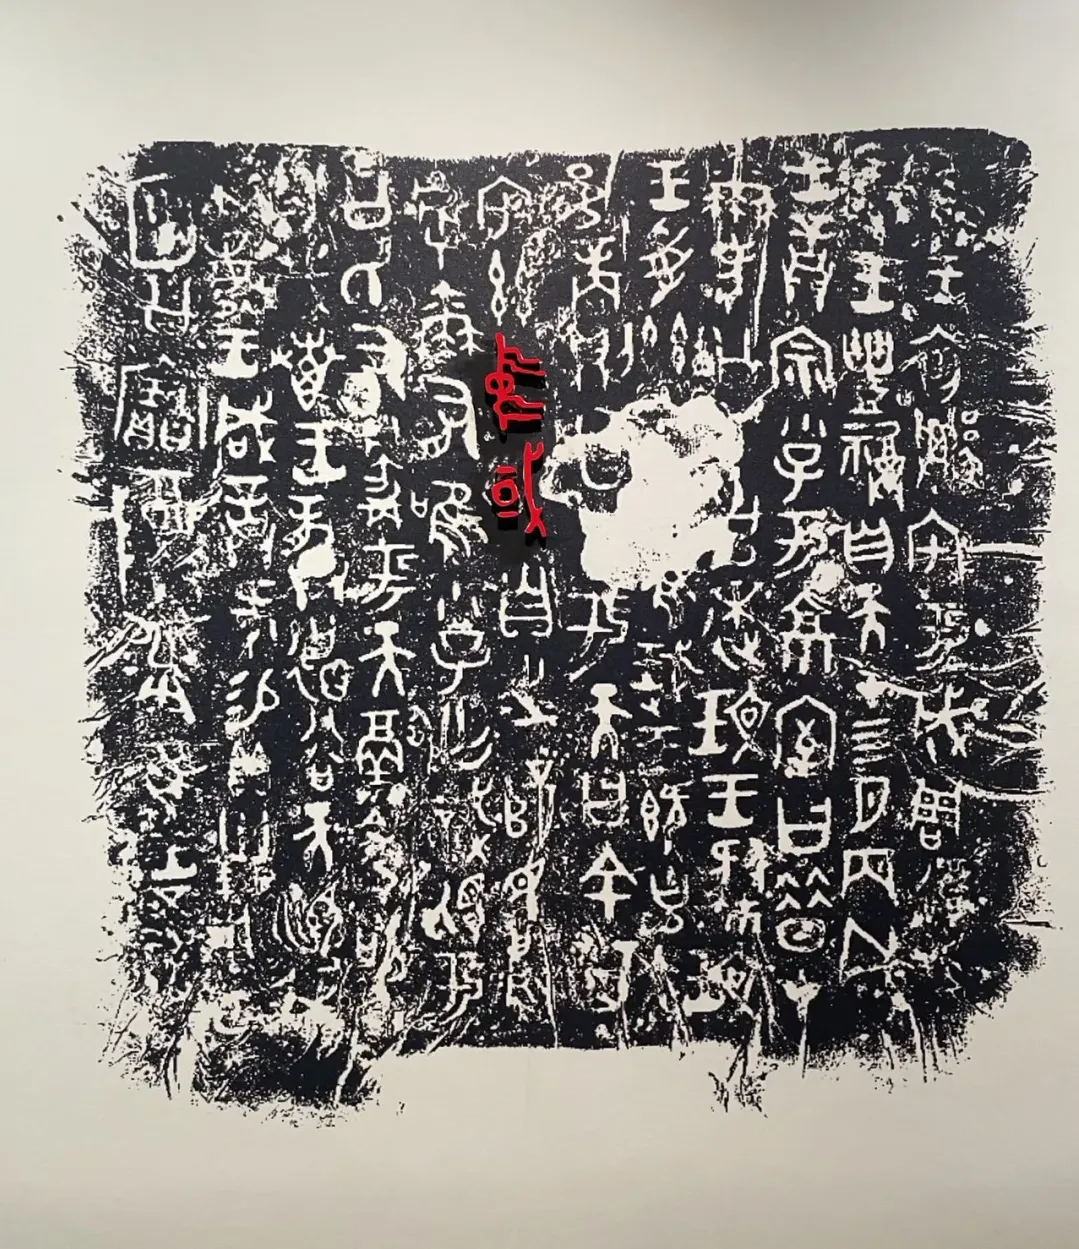 隹王初𨟻宅于成周復
珷王豊祼自天在四月丙戌
王𠱩宗小子于京室曰昔才
爾考公氏克逨玟王肆玟
王受茲隹珷王既克大
邑商則廷告于天曰余其
宅茲中或自之乂民烏
乎爾有唯小子亡識視于
公氏有爵于天徹令敬
享哉叀王龏德谷天順我
不敏王咸𠱩何易貝卅朋用乍
𢉜公寶尊彝隹王五祀